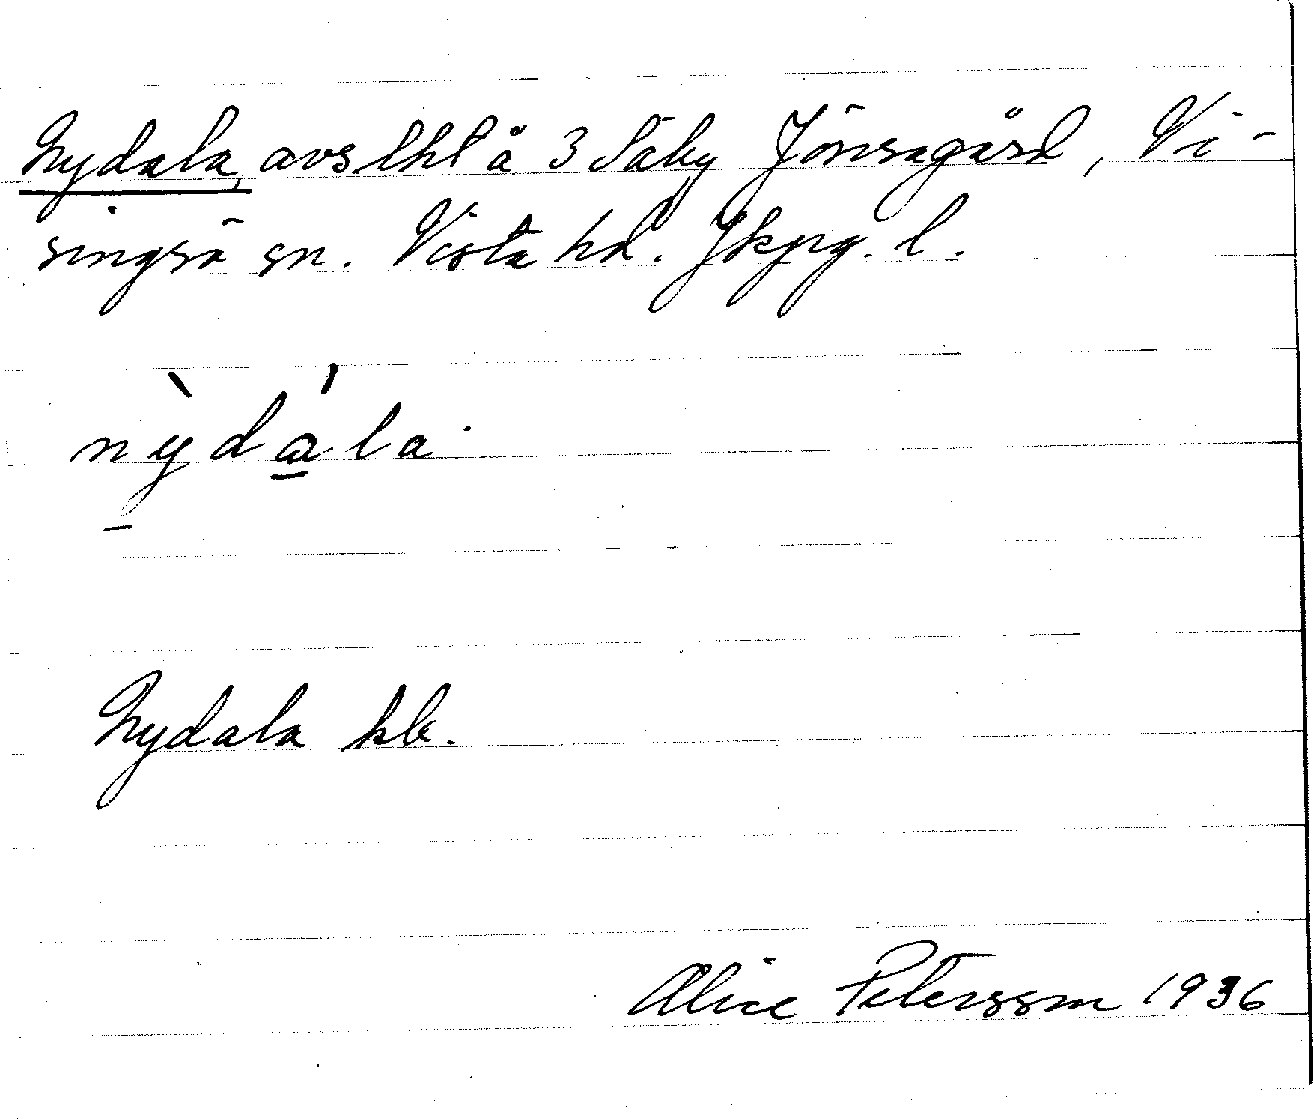 Nydala, avs lht å 3 Säby Jönsagård, Vi-
singsö sn. Vista hd. Jkpg. l.
nỳdála
Nydala kb.
Alice Petersson 1936